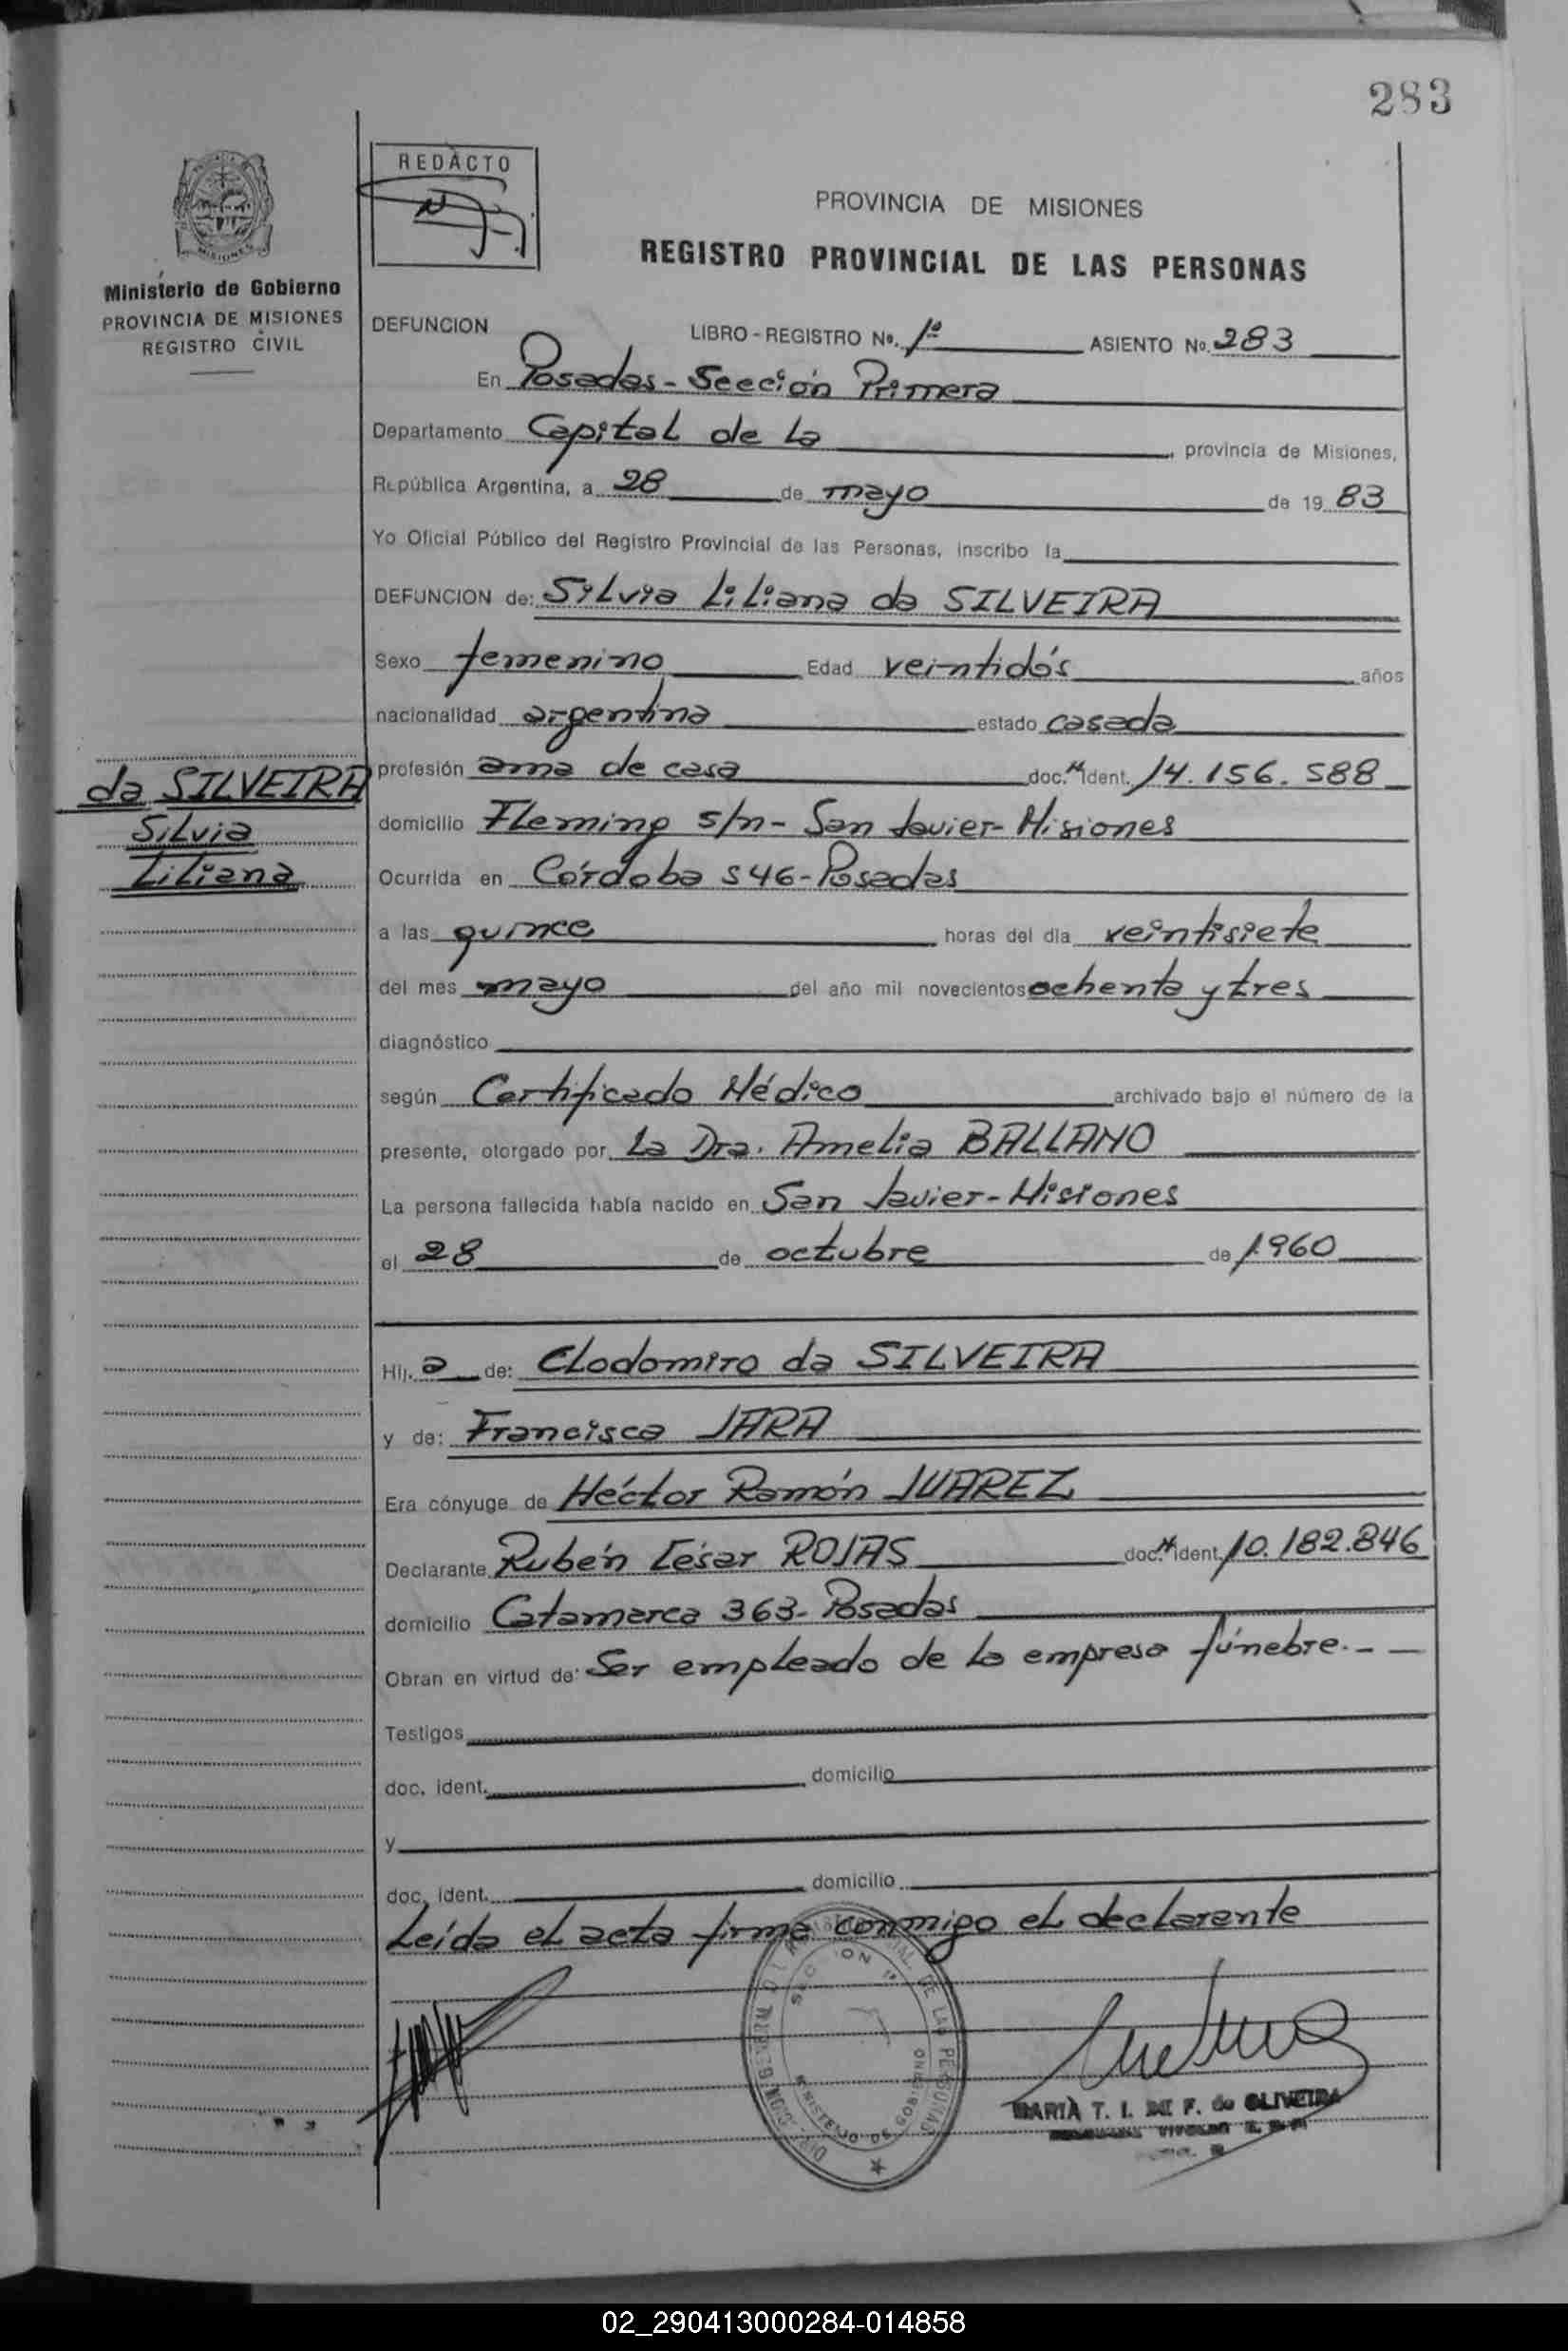 283
REDACTO
PROVINCIA DE MISIONES
REGISTRO PROVINCIAL DE LAS PERSONAS
MISIONES
Ministerio de Gobierno
PROVINCIA DE MISIONES
REGISTRO CIVIL
DEFUNCION LIBRO-REGISTRO Nº. 1º ASIENTO Nº. 283
En Posadas - Sección Primera
Departamento Capital de la , provincia de Misiones,
República Argentina, a 28 de mayo de 1983
Yo Oficial Público del Registro Provincial de las Personas, inscribo la
DEFUNCION de: Silvia Liliana da SILVEIRA
Sexo femenino Edad veintidós años
nacionalidad argentina estado casada
profesión ama de casa doc. Nº ident. 14.156.588
da SILVEIRA
Silvia
Liliana
domicilio Fleming s/n - San Javier - Misiones
Ocurrida en Córdoba 546 - Posadas
a las quince horas del día veintisiete
del mes mayo del año mil novecientos ochenta y tres
diagnóstico
según Certificado Médico archivado bajo el número de la
presente, otorgado por La Dra. Amelia BALLANO
La persona fallecida había nacido en San Javier - Misiones
el 28 de octubre de 1960
Hij. a de: Clodomiro da SILVEIRA
y de: Francisca JARA
Era cónyuge de Héctor Ramón JUAREZ
Declarante Rubén César ROJAS doc. Nº ident. 10.182.846
domicilio Catamarca 363 - Posadas
Obran en virtud de: Ser empleado de la empresa fúnebre.--
Testigos
doc. ident. domicilio
y
doc. ident. domicilio
Leída el acta firma conmigo el declarante
DE LAS PERSONAS
MINISTERIO DE GOBIERNO
MARIA T. I. F. de OLIVEIRA
02_290413000284-014858